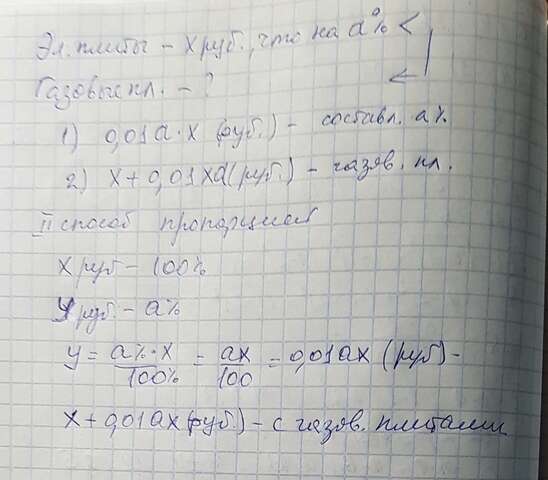 Эл. плиты – x руб., что на a% <
Газовые пл. – ?
1) 0,01a·x (руб.) – составл. a%
2) x+0,01xa (руб.) – газов. пл.
II способ пропорция
x руб – 100%
y руб. – a%
y = a%·x/100% = ax/100 = 0,01ax (руб) –
x+0,01ax (руб.) – с газов. плитами